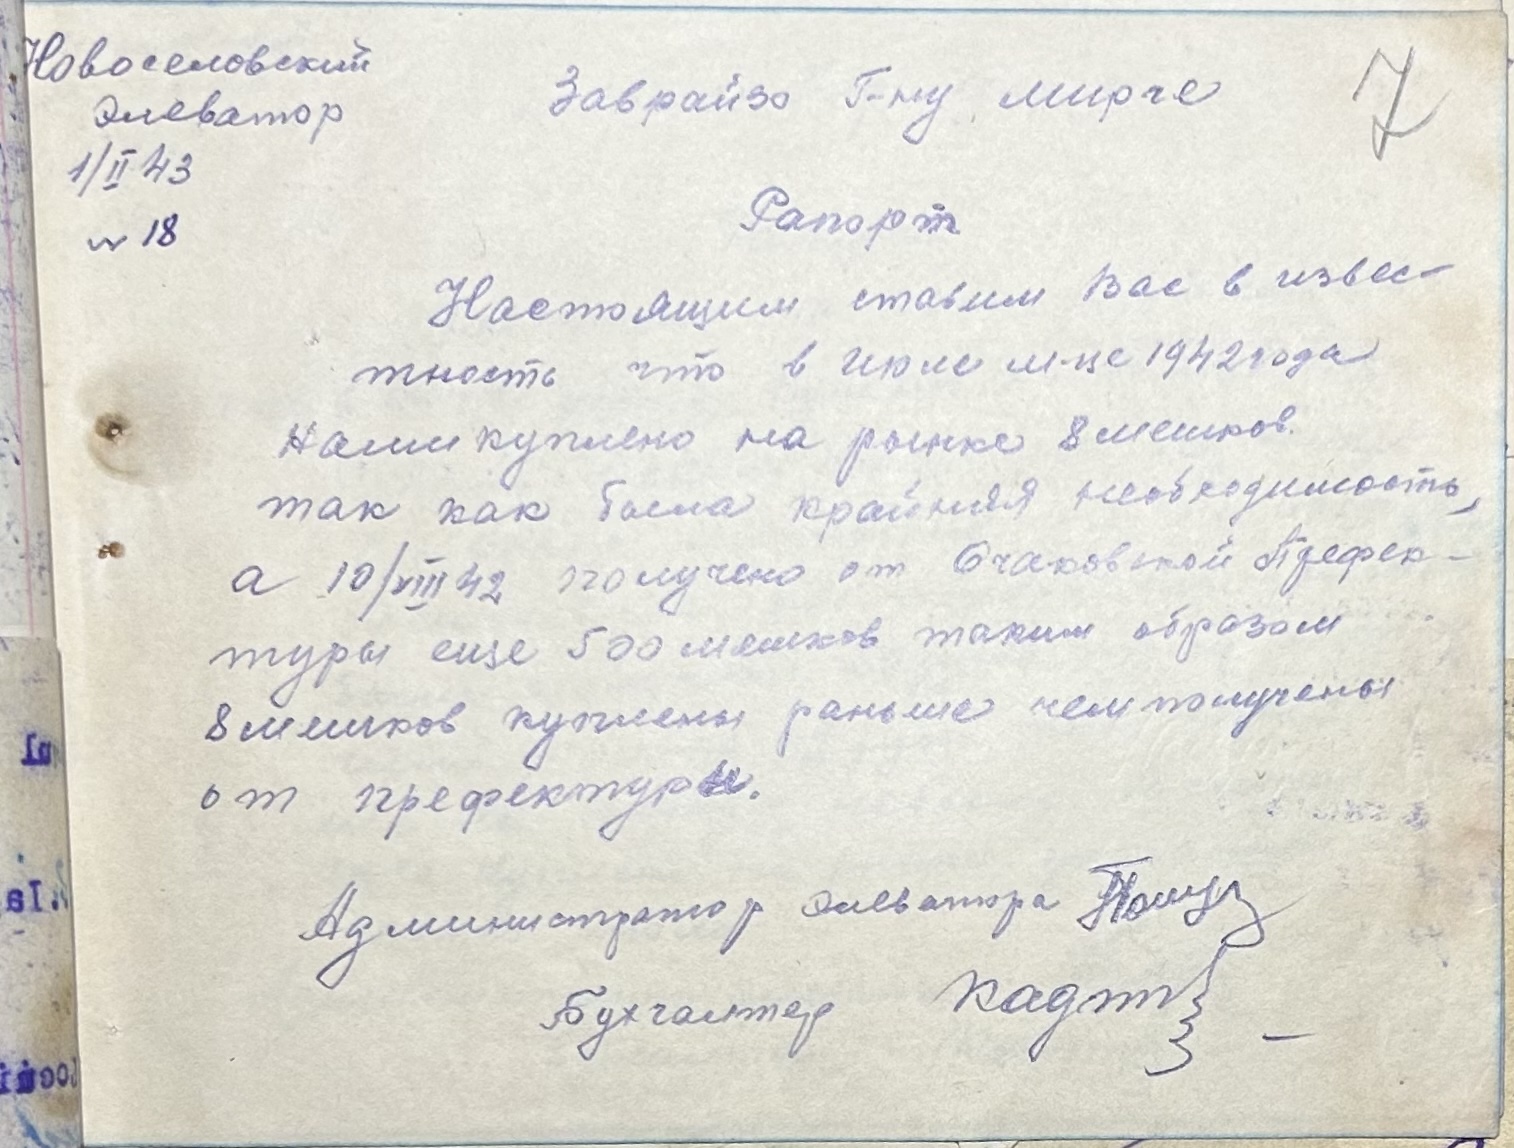 Новоселовский
Элеватор
1/II 43
№ 18
Заврайзо Г-ну Мирче
7
Рапорт
Настоящим ставим Вас в извес-
тность что в Июле м-це 1942 года
Нами куплено на рынке 8 мешков.
так как была крайняя необходимость,
а 10/VIII 42 получено от Очаковской Префек-
туры еще 500 мешков таким образом
8 мешков куплены раньше чем получены
от префектуры.
Администратор элеватора
Бухгалтер